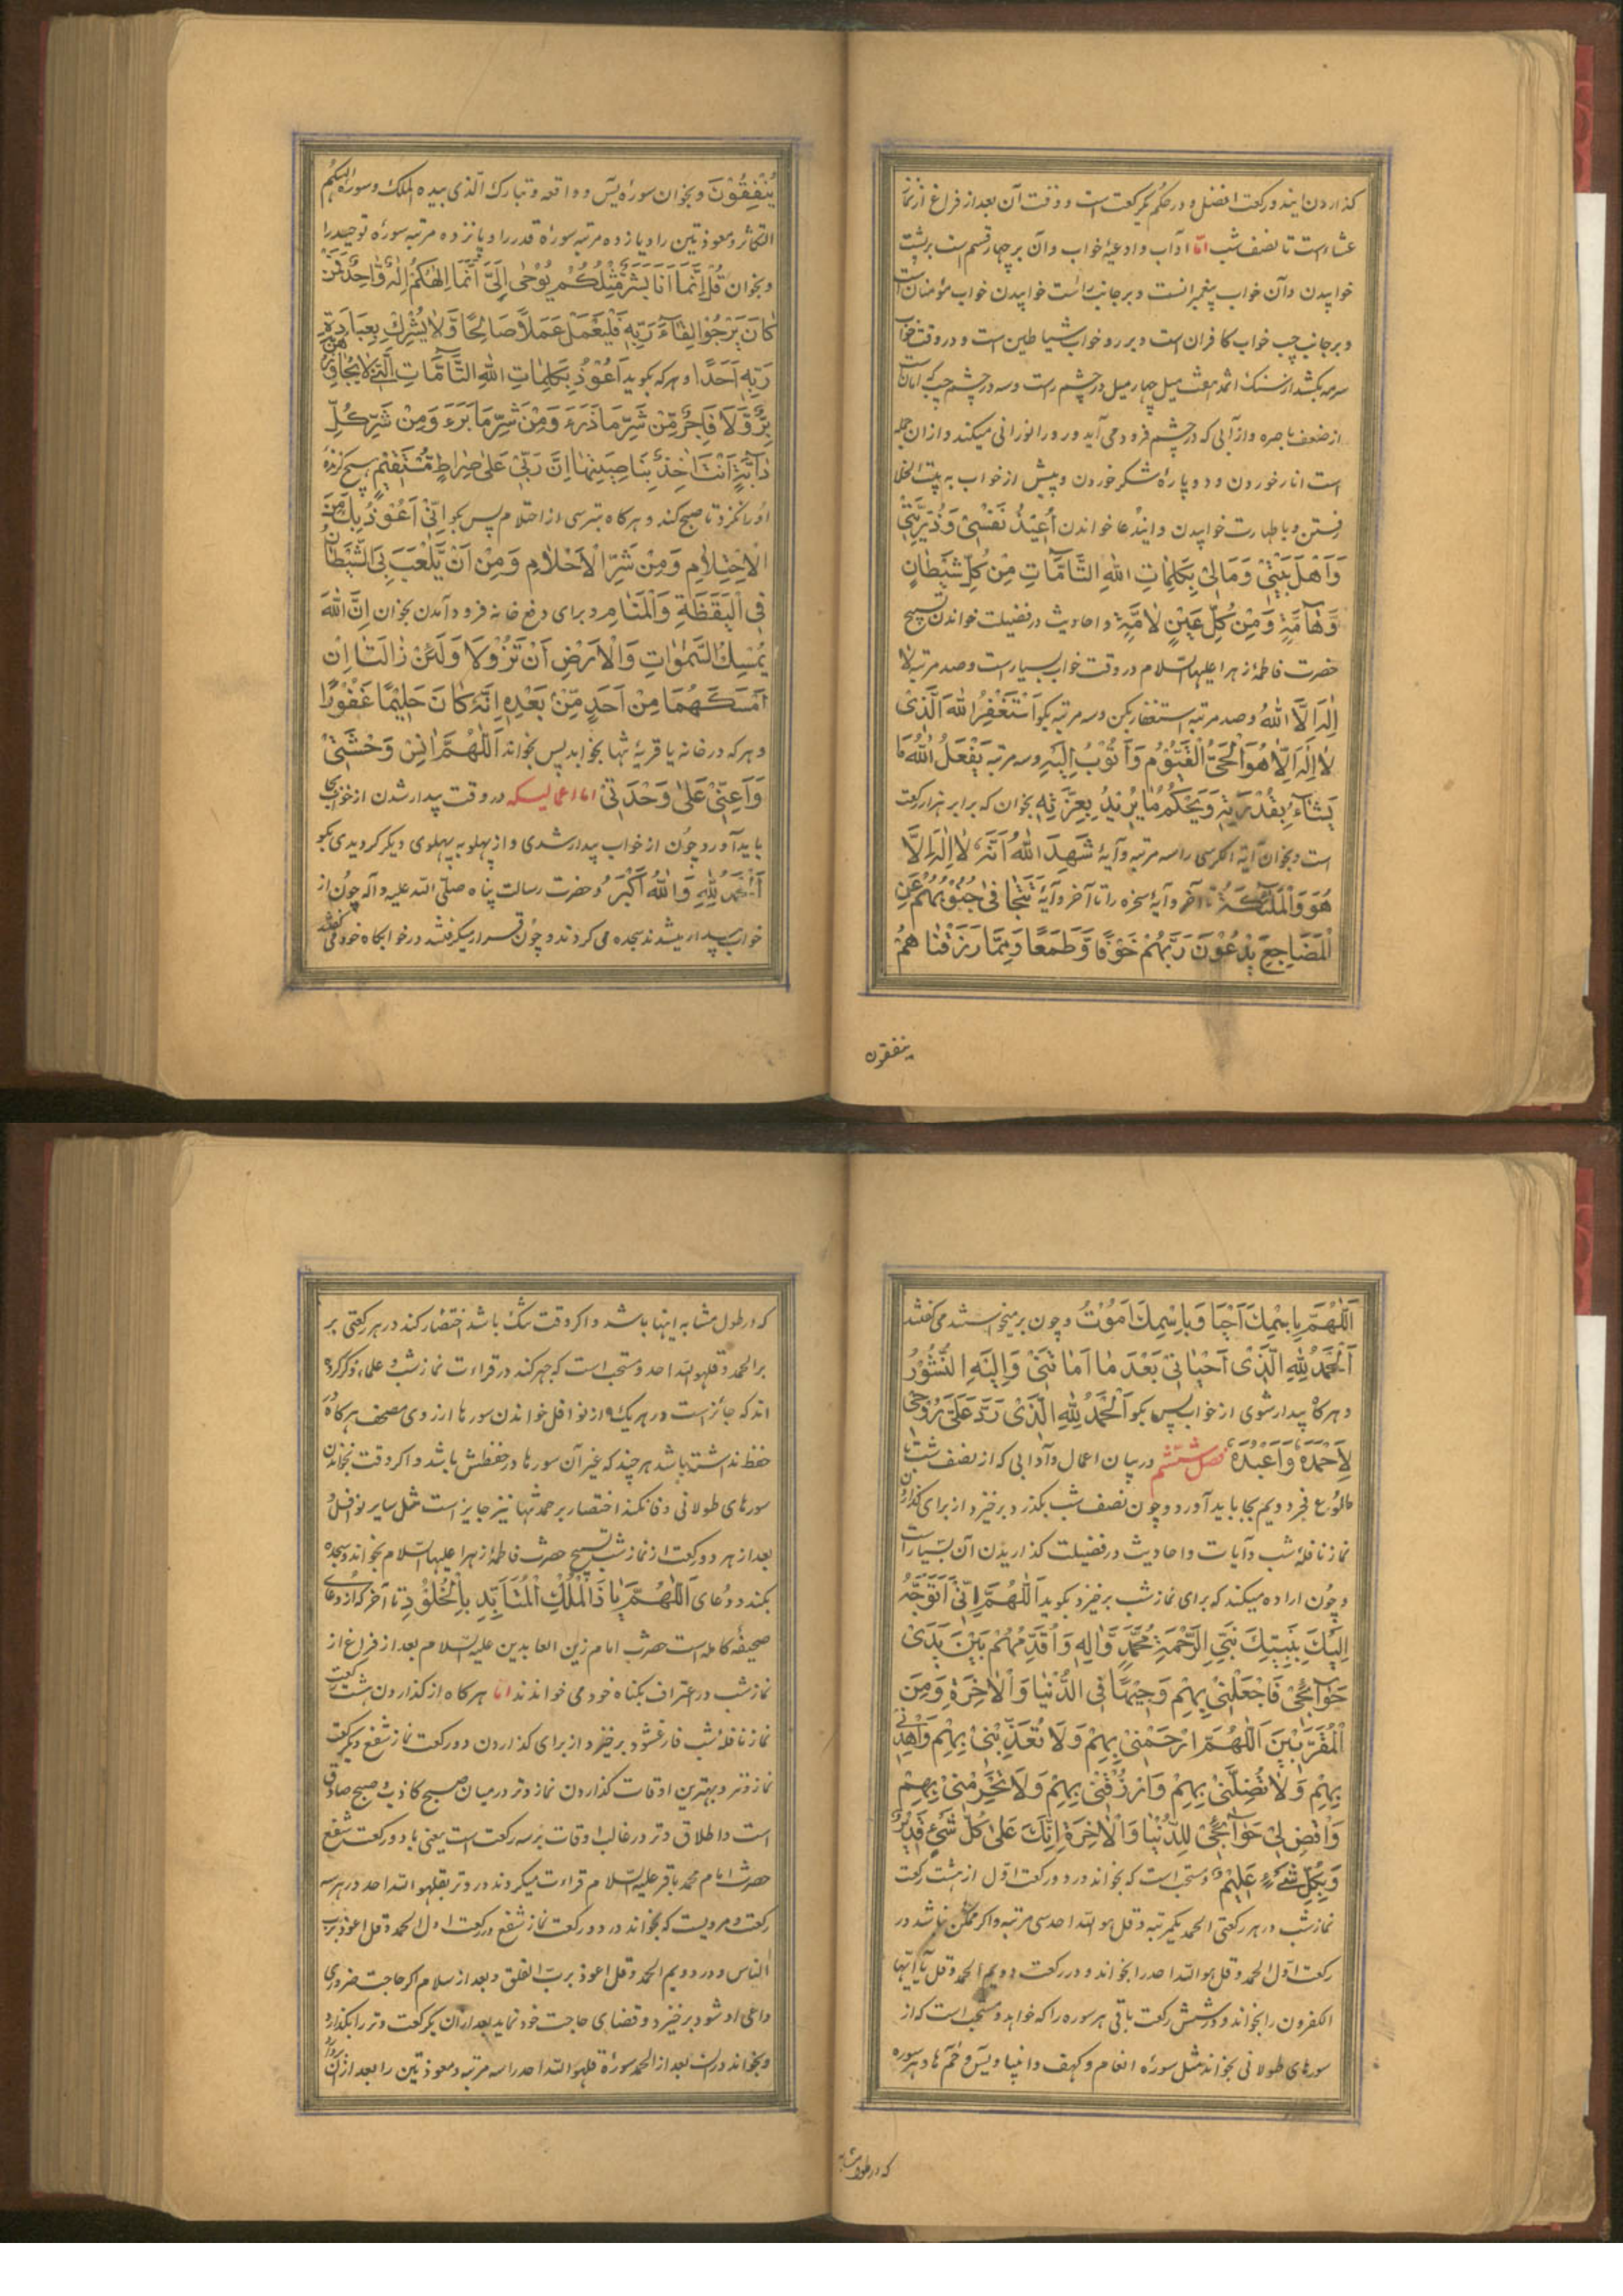 کذاردن ایندو رکعت افضل و در حکم یکرکعت است و وقت آن بعد از فراغ از نماز
عشاء است تا نصف شب اما آداب و ادعیهٔ خواب و آن بر چهار قسم است بر پشت
خوابیدن و آن خواب پیغمبرانست و بر جانب راست خوابیدن خواب مؤمنان است
و بر جانب چپ خواب کافران است و بر رو خواب شیاطین است و در وقت خواب
سرمه بکشد از سنک اثمد هفت میل چهار میل در چشم راست و سه در چشم چپ که امان است
از ضعف باصره و از آبی که در چشم فرود می آید و رو را نورانی میکند و از آن جمله
است انار خوردن و دو پاره شکر خوردن و پیش از خواب به بیت الخلا
رفتن و با طهارت خوابیدن و ایندعا خواندن اُعیذُ نَفْسی وَ ذُرِّیَّتی
وَ اَهْلَ بَیْتی وَ مالی بِکَلِماتِ اللهِ التّامّاتِ مِنْ کُلِّ شَیْطانٍ
وَ هامَّةٍ وَ مِنْ کُلِّ عَیْنٍ لامَّةٍ و احادیث در فضیلت خواندن تسبیح
حضرت فاطمهٔ زهرا علیها السلام در وقت خواب بسیار است و صد مرتبه لا
اِلهَ اِلَّا اللهُ و صد مرتبه استغفار بکن و سه مرتبه بکو اَسْتَغْفِرُ اللهَ الَّذی
لا اِلهَ اِلّا هُوَ الْحَیُّ الْقَیُّومُ وَ اَتُوبُ اِلَیْهِ و سه مرتبه یَفْعَلُ اللهُ ما
یَشاءُ بِقُدْرَتِهِ وَ یَحْکُمُ ما یُریدُ بِعِزَّتِهِ بخوان که برابر هزار رکعت
است و بخوان آیة الکرسی را سه مرتبه و آیهٔ شَهِدَ اللهُ اَنَّهُ لا اِلهَ اِلّا
هُوَ وَ الْمَلائِکَةُ تا آخر و آیهٔ سخره را تا آخر و آیهٔ تَتَجافی جُنُوبُهُمْ عَنِ
الْمَضاجِعِ یَدْعُونَ رَبَّهُمْ خَوْفًا وَ طَمَعًا وَ مِمّا رَزَقْناهُمْ
ینفقون
یُنْفِقُونَ و بخوان سورهٔ یس و واقعه و تبارک الذی بیده الملک و سورهٔ الهیکم
التکاثر و معوذتین را و یازده مرتبه سورهٔ قدر را و پانزده مرتبه سورهٔ توحید را
و بخوان قُلْ اِنَّما اَنَا بَشَرٌ مِثْلُکُمْ یُوحی اِلَیَّ اَنَّما اِلهُکُمْ اِلهٌ واحِدٌ فَمَنْ
کانَ یَرْجُوا لِقاءَ رَبِّهِ فَلْیَعْمَلْ عَمَلًا صالِحًا وَ لا یُشْرِكْ بِعِبادَةِ
رَبِّهِ اَحَدًا و هر که بکوید اَعُوذُ بِکَلِماتِ اللهِ التّامّاتِ الَّتی لا یُجاوِزُهُنَّ
بَرٌّ وَ لا فاجِرٌ مِنْ شَرِّ ما ذَرَءَ وَ مِنْ شَرِّ ما بَرَءَ وَ مِنْ شَرِّ کُلِّ
دابَّةٍ اَنْتَ اخِذٌ بِناصِیَتِها اِنَّ رَبّی عَلی صِراطٍ مُسْتَقیمٍ هیچ کزنده
او را نکزد تا صبح کند و هر کاه بترسی از احتلام پس بکو اِنّی اَعُوذُ بِكَ مِنَ
الْاِحْتِلامِ وَ مِنْ شَرِّ الْاَحْلامِ وَ مِنْ اَنْ یَلْعَبَ بِیَ الشَّیْطانُ
فِی الْیَقَظَةِ وَ الْمَنامِ و برای دفع خانه فرود آمدن بخوان اِنَّ اللهَ
یُمْسِكُ السَّمواتِ وَ الْاَرْضَ اَنْ تَزُولا وَ لَئِنْ زالَتا اِنْ
اَمْسَکَهُما مِنْ اَحَدٍ مِنْ بَعْدِهِ اِنَّهُ کانَ حَلیمًا غَفُورًا
و هر که در خانه یا قریهٔ تنها بخوابد پس بخواند اَللّهُمَّ انِسْ وَحْشَتی
وَ اَعِنّی عَلی وَحْدَتی اما اعمالیکه در وقت بیدار شدن از خواب بجا
باید آورد چون از خواب بیدار شدی و از پهلو به پهلوی دیکر کردیدی بکو
اَلْحَمْدُ لِلّهِ وَ اللهُ اَکْبَرُ و حضرت رسالت پناه صلی الله علیه و آله چون از
خواب بیدار میشدند سجده می کردند و چون قرار میکرفتند در خوابکاه خود می کفتند
اَللّهُمَّ بِاسْمِكَ اَحْیا وَ بِاسْمِكَ اَمُوتُ و چون بر میخواستند می کفتند
اَلْحَمْدُ لِلّهِ الَّذی اَحْیانی بَعْدَ ما اَماتَنی وَ اِلَیْهِ النُّشُورُ
و هر کاه بیدار شوی از خواب پس بکو اَلْحَمْدُ لِلّهِ الَّذی رَدَّ عَلَیَّ رُوحی
لِاَحْمَدَهُ وَ اَعْبُدَهُ فصل ششم در بیان اعمال و آدابی که از نصف شب تا
طلوع فجر دویم بجا باید آورد و چون نصف شب بکذرد برخیزد از برای کذاردن
نماز نافله شب و آیات و احادیث در فضیلت کذاریدن آن بسیار است
و چون اراده میکند که برای نماز شب برخیزد بکوید اَللّهُمَّ اِنّی اَتَوَجَّهُ
اِلَیْكَ بِنَبِیِّكَ نَبِیِّ الرَّحْمَةِ مُحَمَّدٍ وَ الِهِ وَ اُقَدِّمُهُمْ بَیْنَ یَدَیْ
حَوائِجی فَاجْعَلْنی بِهِمْ وَجیهًا فِی الدُّنْیا وَ الْاخِرَةِ وَ مِنَ
الْمُقَرَّبینَ اَللّهُمَّ ارْحَمْنی بِهِمْ وَ لا تُعَذِّبْنی بِهِمْ وَ اهْدِنی
بِهِمْ وَ لا تُضِلَّنی بِهِمْ وَ ارْزُقْنی بِهِمْ وَ لا تَحْرِمْنی بِهِمْ
وَ اقْضِ لی حَوائِجی لِلدُّنْیا وَ الْاخِرَةِ اِنَّكَ عَلی کُلِّ شَیْءٍ قَدیرٌ
وَ بِکُلِّ شَیْءٍ عَلیمٌ و مستحب است که بخواند در دو رکعت اول از هشت رکعت
نماز شب در هر رکعتی الحمد یکمرتبه و قل هو الله احد سی مرتبه و اکر ممکن نباشد در
رکعت اول الحمد و قل هو الله احد را بخواند و در رکعت دویم الحمد و قل یا ایها
الکفرون را بخواند و در شش رکعت باقی هر سوره را که خواهد و مستحب است که از
سورهای طولانی بخواند مثل سورهٔ انعام و کهف و انبیا و یس و حم ها و هر سوره
که در طول مشابه
که در طول مشابه اینها باشد و اکر وقت تنک باشد اختصار کند در هر رکعتی بر
بر الحمد و قلهو الله احد و مستحب است که جهر کند در قراءت نماز شب و علماء ذکر کرده
اند که جائز است در هر یک از نوافل خواندن سورها از روی مصحف هر کاه
حفظ نداشته باشد هر چند که غیر آن سورها در حفظش باشد و اکر وقت بخواندن
سورهای طولانی وفا نکند اختصار بر حمد تنها نیز جایز است مثل سایر نوافل و
بعد از هر دو رکعت از نماز شب تسبیح حضرت فاطمهٔ زهرا علیها السلام بخواند و سجده
بکند و دعای اَللّهُمَّ یا ذَا الْمُلْكِ الْمُتَاَبِّدِ بِالْخُلُودِ تا آخر که از دعای
صحیفه کامله است حضرت امام زین العابدین علیه السلام بعد از فراغ از
نماز شب در اعتراف بکناه خود می خواندند اما هر کاه از کذاردن هشت رکعت
نماز نافلهٔ شب فارغ شود برخیزد از برای کذاردن دو رکعت نماز شفع و یکرکعت
نماز وتر و بهترین اوقات کذاردن نماز وتر در میان صبح کاذب و صبح صادق
است و اطلاق وتر در غالب اوقات بر سه رکعت است یعنی با دو رکعت شفع
حضرت امام محمد باقر علیه السلام قراءت میکردند در وتر بقلهو الله احد در هر سه
رکعت و مرویست که بخواند در دو رکعت نماز شفع در رکعت اول الحمد و قل اعوذ برب
الناس و در دویم الحمد و قل اعوذ برب الفلق و بعد از سلام اکر حاجت ضروری
داعی او شود برخیزد و قضای حاجت خود نماید بعد از آن یکرکعت وتر را بکذارد
و بخواند در آن بعد از الحمد سورهٔ قلهو الله احد را سه مرتبه و معوذتین را بعد از آن